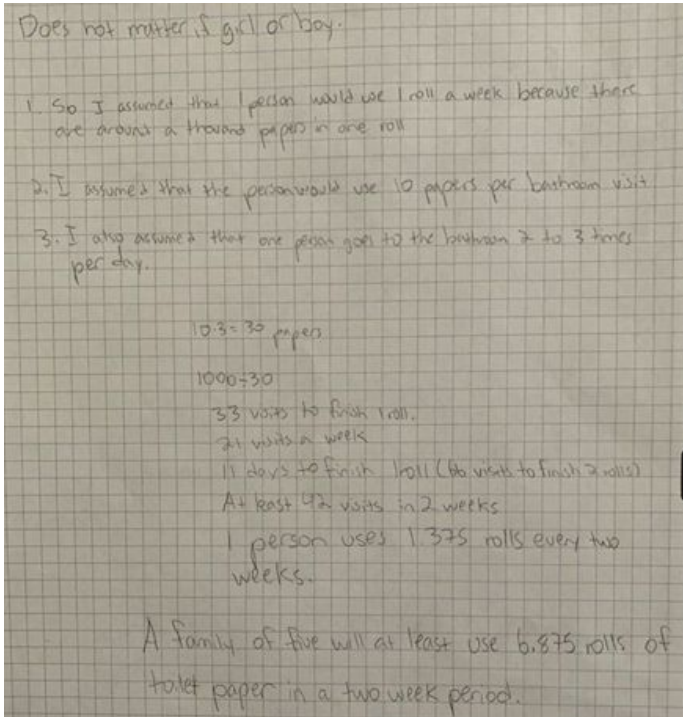 Does not matter if girl or boy.
1. So I assumed that 1 person would use 1 roll a week because there
are around a thousand papers in one roll
2. I assumed that the person would use 10 papers per bathroom visit
3. I also assumed that one person goes to the bathroom 2 to 3 times
per day.
10·3=30 papers
1000÷30
33 visits to finish 1 roll.
21 visits a week
11 days to finish 1 roll (66 visits to finish 2 rolls)
At least 42 visits in 2 weeks
1 person uses 1.375 rolls every two
weeks.
A family of five will at least use 6.875 rolls of
toilet paper in a two week period.